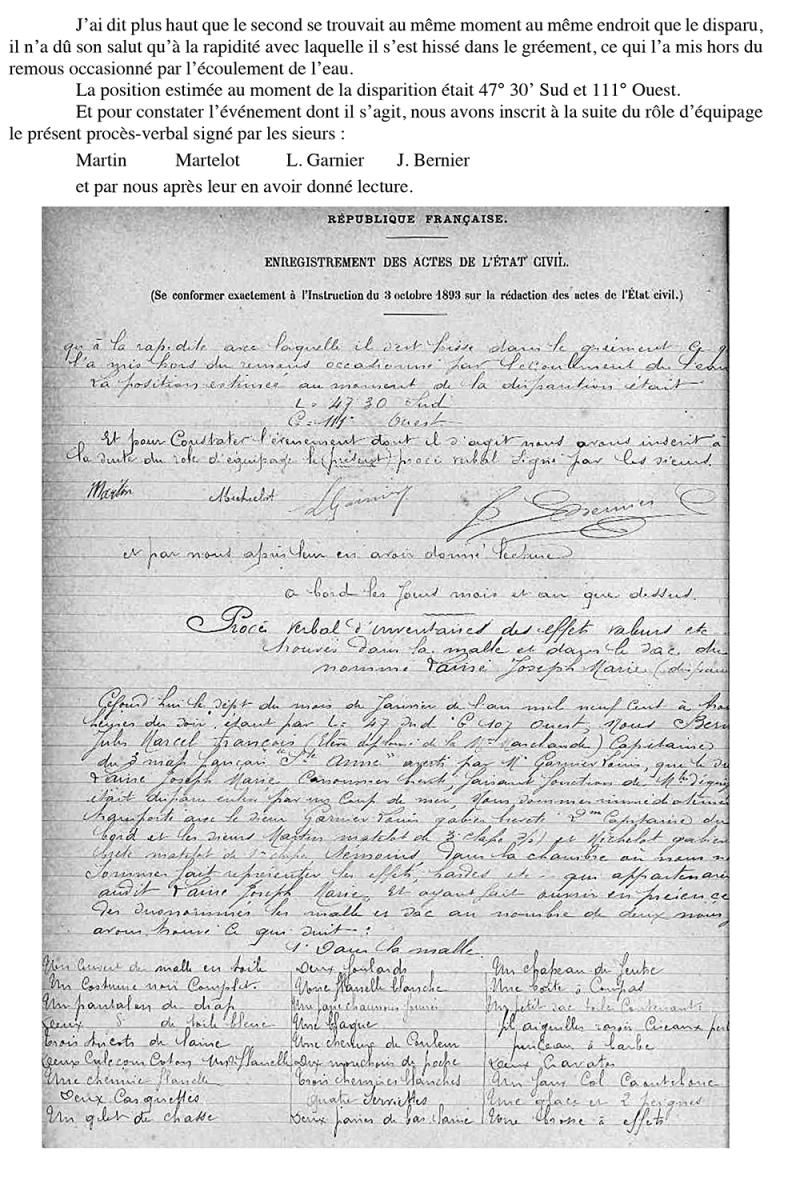 J’ai dit plus haut que le second se trouvait au même moment au même endroit que le disparu,
il n’a dû son salut qu’à la rapidité avec laquelle il s’est hissé dans le gréement, ce qui l’a mis hors du
remous occasionné par l’écoulement de l’eau.
La position estimée au moment de la disparition était 47° 30’ Sud et 111° Ouest.
Et pour constater l’événement dont il s’agit, nous avons inscrit à la suite du rôle d’équipage
le présent procès-verbal signé par les sieurs :
Martin Martelot L. Garnier J. Bernier
et par nous après leur en avoir donné lecture.
RÉPUBLIQUE FRANÇAISE.
ENREGISTREMENT DES ACTES DE L’ÉTAT CIVIL.
(Se conformer exactement à l’Instruction du 3 octobre 1893 sur la rédaction des actes de l’État civil.)
qu'à la rapidité avec laquelle il s'est hissé dans le gréement
l'a mis hors du remous occasionné par l'écoulement de l'eau
La position estimée au moment de la disparition était
L = 47 30 Sud
G = 111° Ouest
Et pour Constater l'évènement dont il s'agit nous avons inscrit à
la suite du role d'équipage le (présent) procé verbal signé par les sieurs.
Martin Michelot LGarnier
et par nous après leur en avoir donné lecture
a bord les Jours mois et an que dessus.
Procé verbal d'inventaires des effets valeurs etc
trouvés dans la malle et dans le sac du
nommé Lainé Joseph Marie
Cejourd'hui le sept du mois de Janvier de l'an mil neuf Cent à
heures du soir, étant par L = 47 Sud G 107 Ouest, Nous
Jules Marcel François Capitaine
du 3 mats français "Ste Anne" averti par Mr Garnier Louis, que le
Lainé Joseph Marie Canonnier breveté, faisant fonctions de
était disparu enlevé par un Coup de mer, Nous sommes
transporté avec le sieur Garnier Louis gabier breveté Capitaine du
bord et les sieurs Martin matelot de 3e classe et Michelot gabier
breveté matelot de classe témoins, dans la chambre ou nous
sommes fait représenter les effets, hardes etc. que
audit Lainé Joseph Marie, Et ayant fait ouvrir en présence
des susnommés les malle et sac au nombre de deux nous
avons trouvé Ce qui suit :
1° Dans la malle.
Un de malle en toile Deux foulards Un chapeau de feutre
Un Costume noir Complet. Une flanelle blanche Une boite à Compas
Un pantalon de drap Un petit sac toile Contenant
Deux d° de toile bleue Une blague fil aiguilles rasoir Ciseaux
Trois tricots de laine Une chemise de Couleur pinceau à barbe
Deux Caleçons Coton Deux mouchoirs de poche Deux Cravates
Une chemise flanelle Trois chemises blanches Un faux Col Caoutchouc
Deux Casquettes Quatre Serviettes Une glace et 2 peignes
Un gilet de chasse Deux paires de bas laine Une brosse à effets